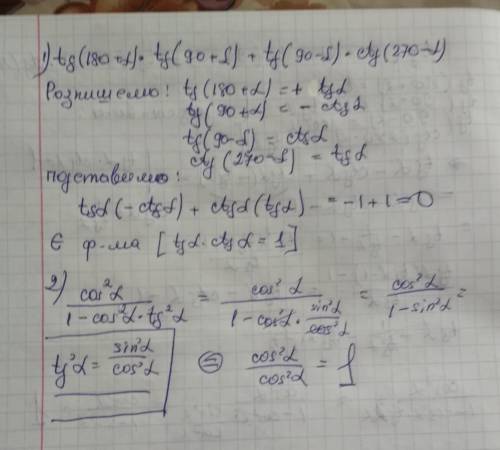 1) tg(180+α)·tg(90+α)+tg(90-α)·ctg(270-α)
Розпишемо: tg(180+α)=+ tgα
tg(90+α) = - ctgα
tg(90-α) = ctgα
ctg(270-α) = tgα
підставляємо:
tgα(-ctgα) + ctgα(tgα) = -1+1=0
Є ф-ма [tgα·ctgα=1]
2) cos²α / (1-cos²α·tg²α) = cos²α / (1-cos²α·sin²α/cos²α) = cos²α / (1-sin²α) =
tg²α = sin²α/cos²α
⊜ cos²α/cos²α = 1